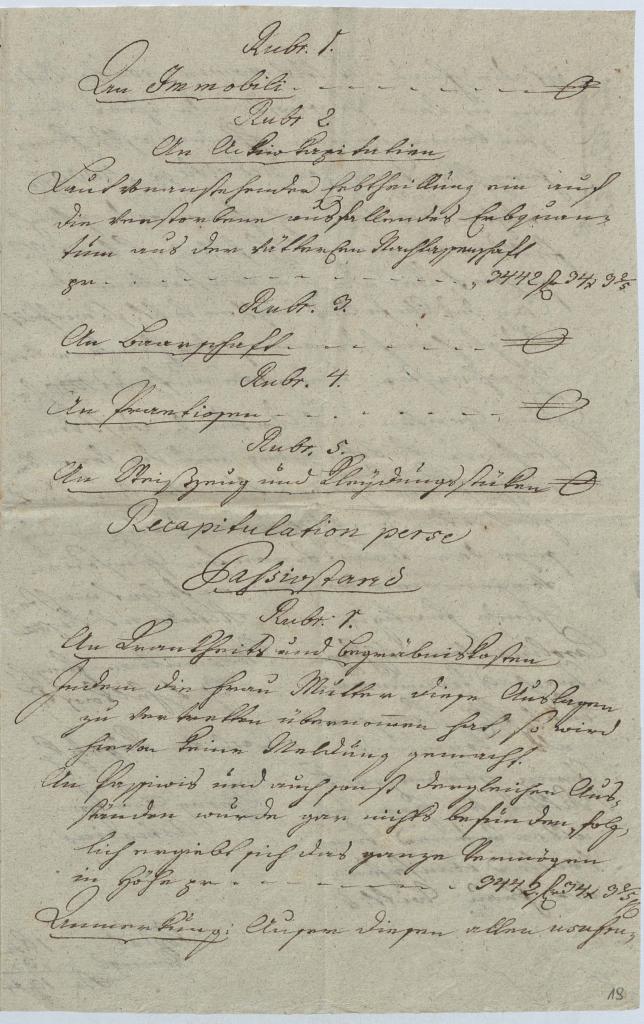 Rubr. 1.
An Immobili - - - - - - - 0
Rubr 2.
An Activkapitalien
Laut voranstehender Erbtheillung ein auf
die verstorbene ausfallendes Erbquan-
tum aus der vätterlichen Nachlassenschaft
pr - - - - - - - - 3442 fl 34 x 3 2/5
Rubr. 3.
An Baarschaft - - - - - - 0
Rubr. 4.
An Praetiosen - - - - - - 0
Rubr. 5.
An Weißzeug und Kleydungsstüken 0
Recapitulation perse
Passivstand
Rubr. 1.
An Krankheits und Begräbniskosten
Indem die Frau Mutter diese Auslagen
zu vertretten übernommen hat, so wird
hievon keine Meldung gemacht.
An Passivis und auch sonst dergleichen Aus-
ständen wurde gar nichts befunden, folg-
lich ergiebt sich das ganze Vermögen
in Höhe pr - - - - - - 3442 fl 34 x 3 2/5
Anmerkung: Auser diesen allen
18